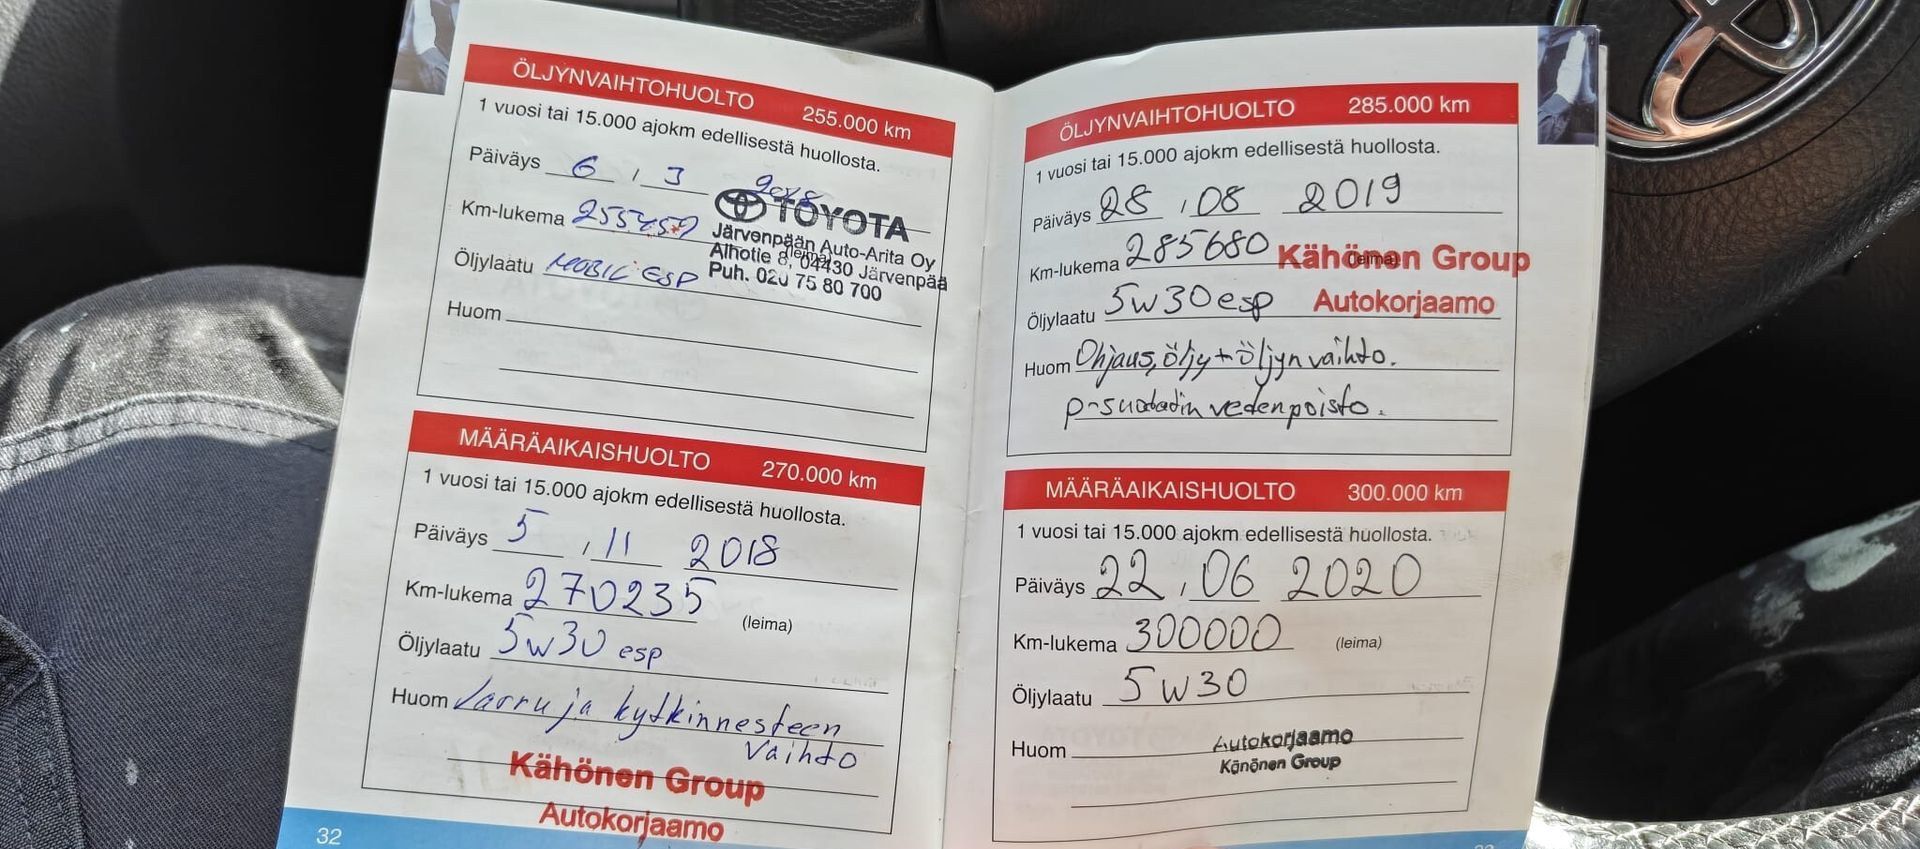 ÖLJYNVAIHTOHUOLTO 255.000 km
1 vuosi tai 15.000 ajokm edellisestä huollosta.
Päiväys 6 , 3 2018
Km-lukema
TOYOTA
Järvenpään Auto-Arita Oy
Alhotie 8, 04430 Järvenpää
Puh. 020 75 80 700
(leima)
Öljylaatu MOBIL ESP
Huom
MÄÄRÄAIKAISHUOLTO 270.000 km
1 vuosi tai 15.000 ajokm edellisestä huollosta.
Päiväys 5 , 11 2018
Km-lukema 270235 (leima)
Öljylaatu 5w30 esp
Huom Jarru ja kytkinnesteen
vaihto
Kähönen Group
Autokorjaamo
32
ÖLJYNVAIHTOHUOLTO 285.000 km
1 vuosi tai 15.000 ajokm edellisestä huollosta.
Päiväys 28 , 08 2019
Km-lukema 285680 (leima)
Kähönen Group
Autokorjaamo
Öljylaatu 5w30 esp
Huom Ohjaus,öljy+öljynvaihto.
p-suodatin vedenpoisto.
MÄÄRÄAIKAISHUOLTO 300.000 km
1 vuosi tai 15.000 ajokm edellisestä huollosta.
Päiväys 22 , 06 2020
Km-lukema 300000 (leima)
Öljylaatu 5W30
Huom
Autokorjaamo
Kähönen Group